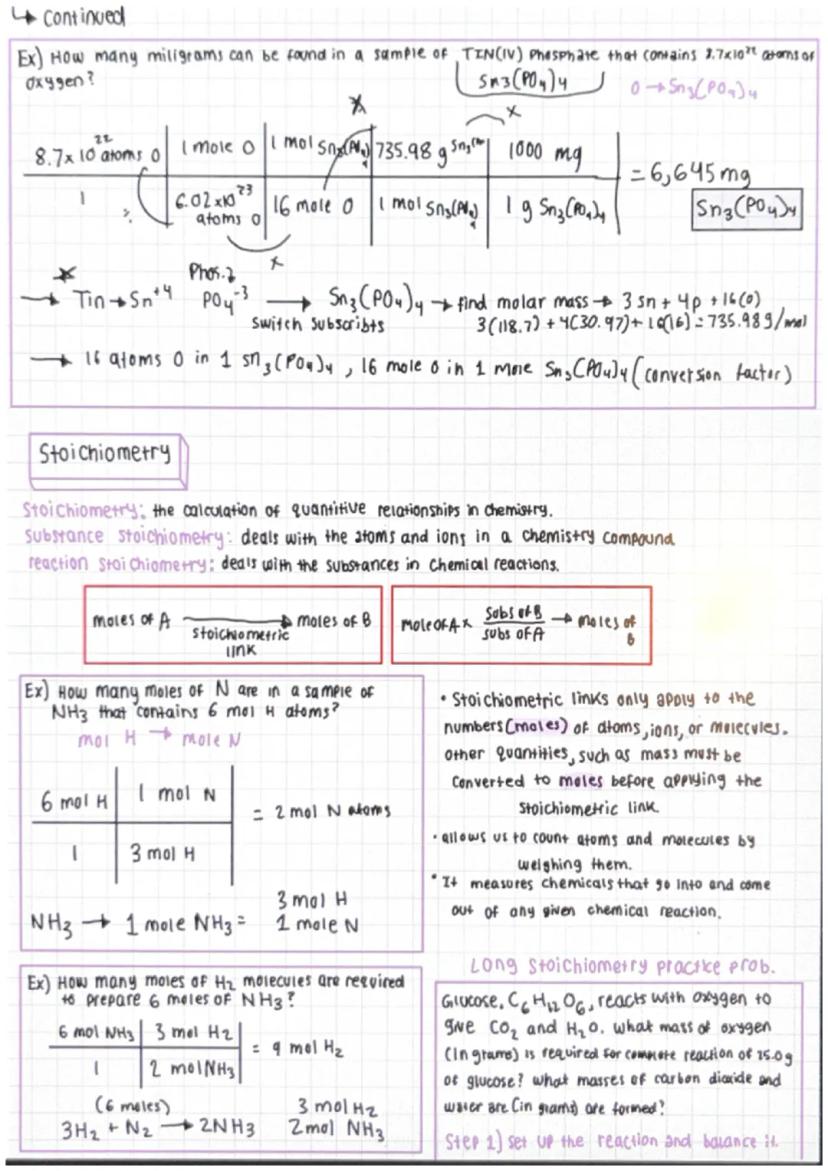 ↳ Continued
Ex) How many miligrams can be found in a sample of TIN(IV) Phosphate that contains 8.7x10²² atoms of
oxygen?
Sn3(PO4)4
O → Sn3(PO4)4
8.7x10²² atoms O | 1 mole O | 1 mol Sn3(PO4)4 | 735.98 g Sn3(PO4)4 | 1000 mg
1 | 6.02x10²³ atoms O | 16 mole O | 1 mol Sn3(PO4)4 | 1 g Sn3(PO4)4
= 6,645 mg
Sn3(PO4)4
→ Tin → Sn⁺⁴ PO4⁻³ → Sn3(PO4)4 → find molar mass → 3 sn + 4p + 16(O)
switch subscribts 3(118.7) + 4(30.97) + 16(16) = 735.98 g/mol
→ 16 atoms O in 1 sn3(PO4)4, 16 mole O in 1 mole Sn3(PO4)4 (conversion factor)
Stoichiometry
Stoichiometry: the calculation of quantitive relationships in chemistry.
Substance Stoichiometry: deals with the atoms and ions in a chemistry compound
reaction Stoichiometry: deals with the substances in chemical reactions.
moles of A → moles of B
stoichiometric
link
mole of A x subs of B / subs of A → moles of
B
Ex) How many moles of N are in a sample of
NH3 that contains 6 mol H atoms?
mol H → mole N
6 mol H | 1 mol N
= 2 mol N atoms
1 | 3 mol H
3 mol H
NH3 → 1 mole NH3 = 1 mole N
• Stoichiometric links only apply to the
numbers (moles) of atoms, ions, or molecules.
other quantities, such as mass must be
converted to moles before applying the
stoichiometric link.
• allows us to count atoms and molecules by
weighing them.
• It measures chemicals that go into and come
out of any given chemical reaction.
Ex) How many moles of H2 molecules are required
to prepare 6 moles of NH3?
6 mol NH3 | 3 mol H2
= 9 mol H2
1 | 2 mol NH3
(6 moles) 3 mol H2
3H2 + N2 → 2NH3 2mol NH3
Long Stoichiometry practice prob.
Glucose, C6H12O6, reacts with oxygen to
give CO2 and H2O. What mass of oxygen
(in grams) is required for complete reaction of 25.0g
of glucose? What masses of carbon dioxide and
water are (in grams) are formed?
Step 1) set up the reaction and balance it.